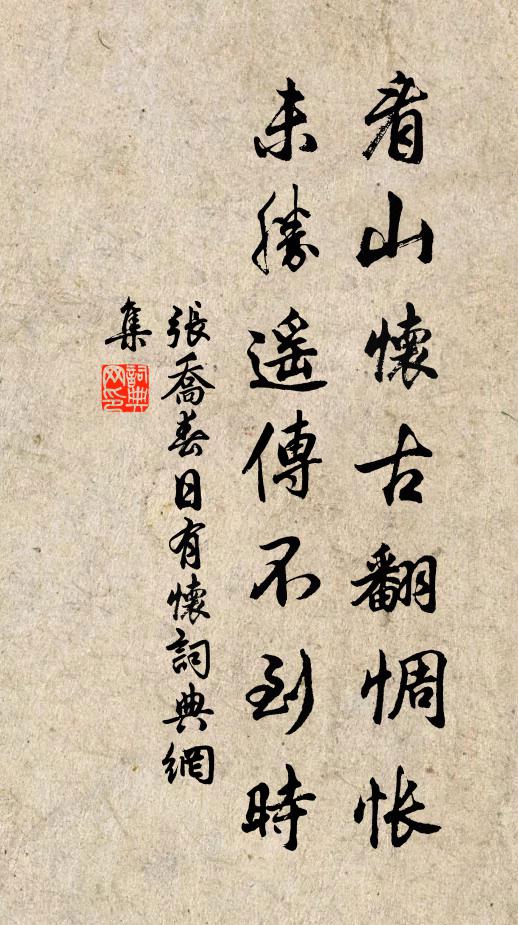 看山懷古翻惆悵
未勝遥傳不到時
張喬春日有懷詞典網
集
詞典
网印